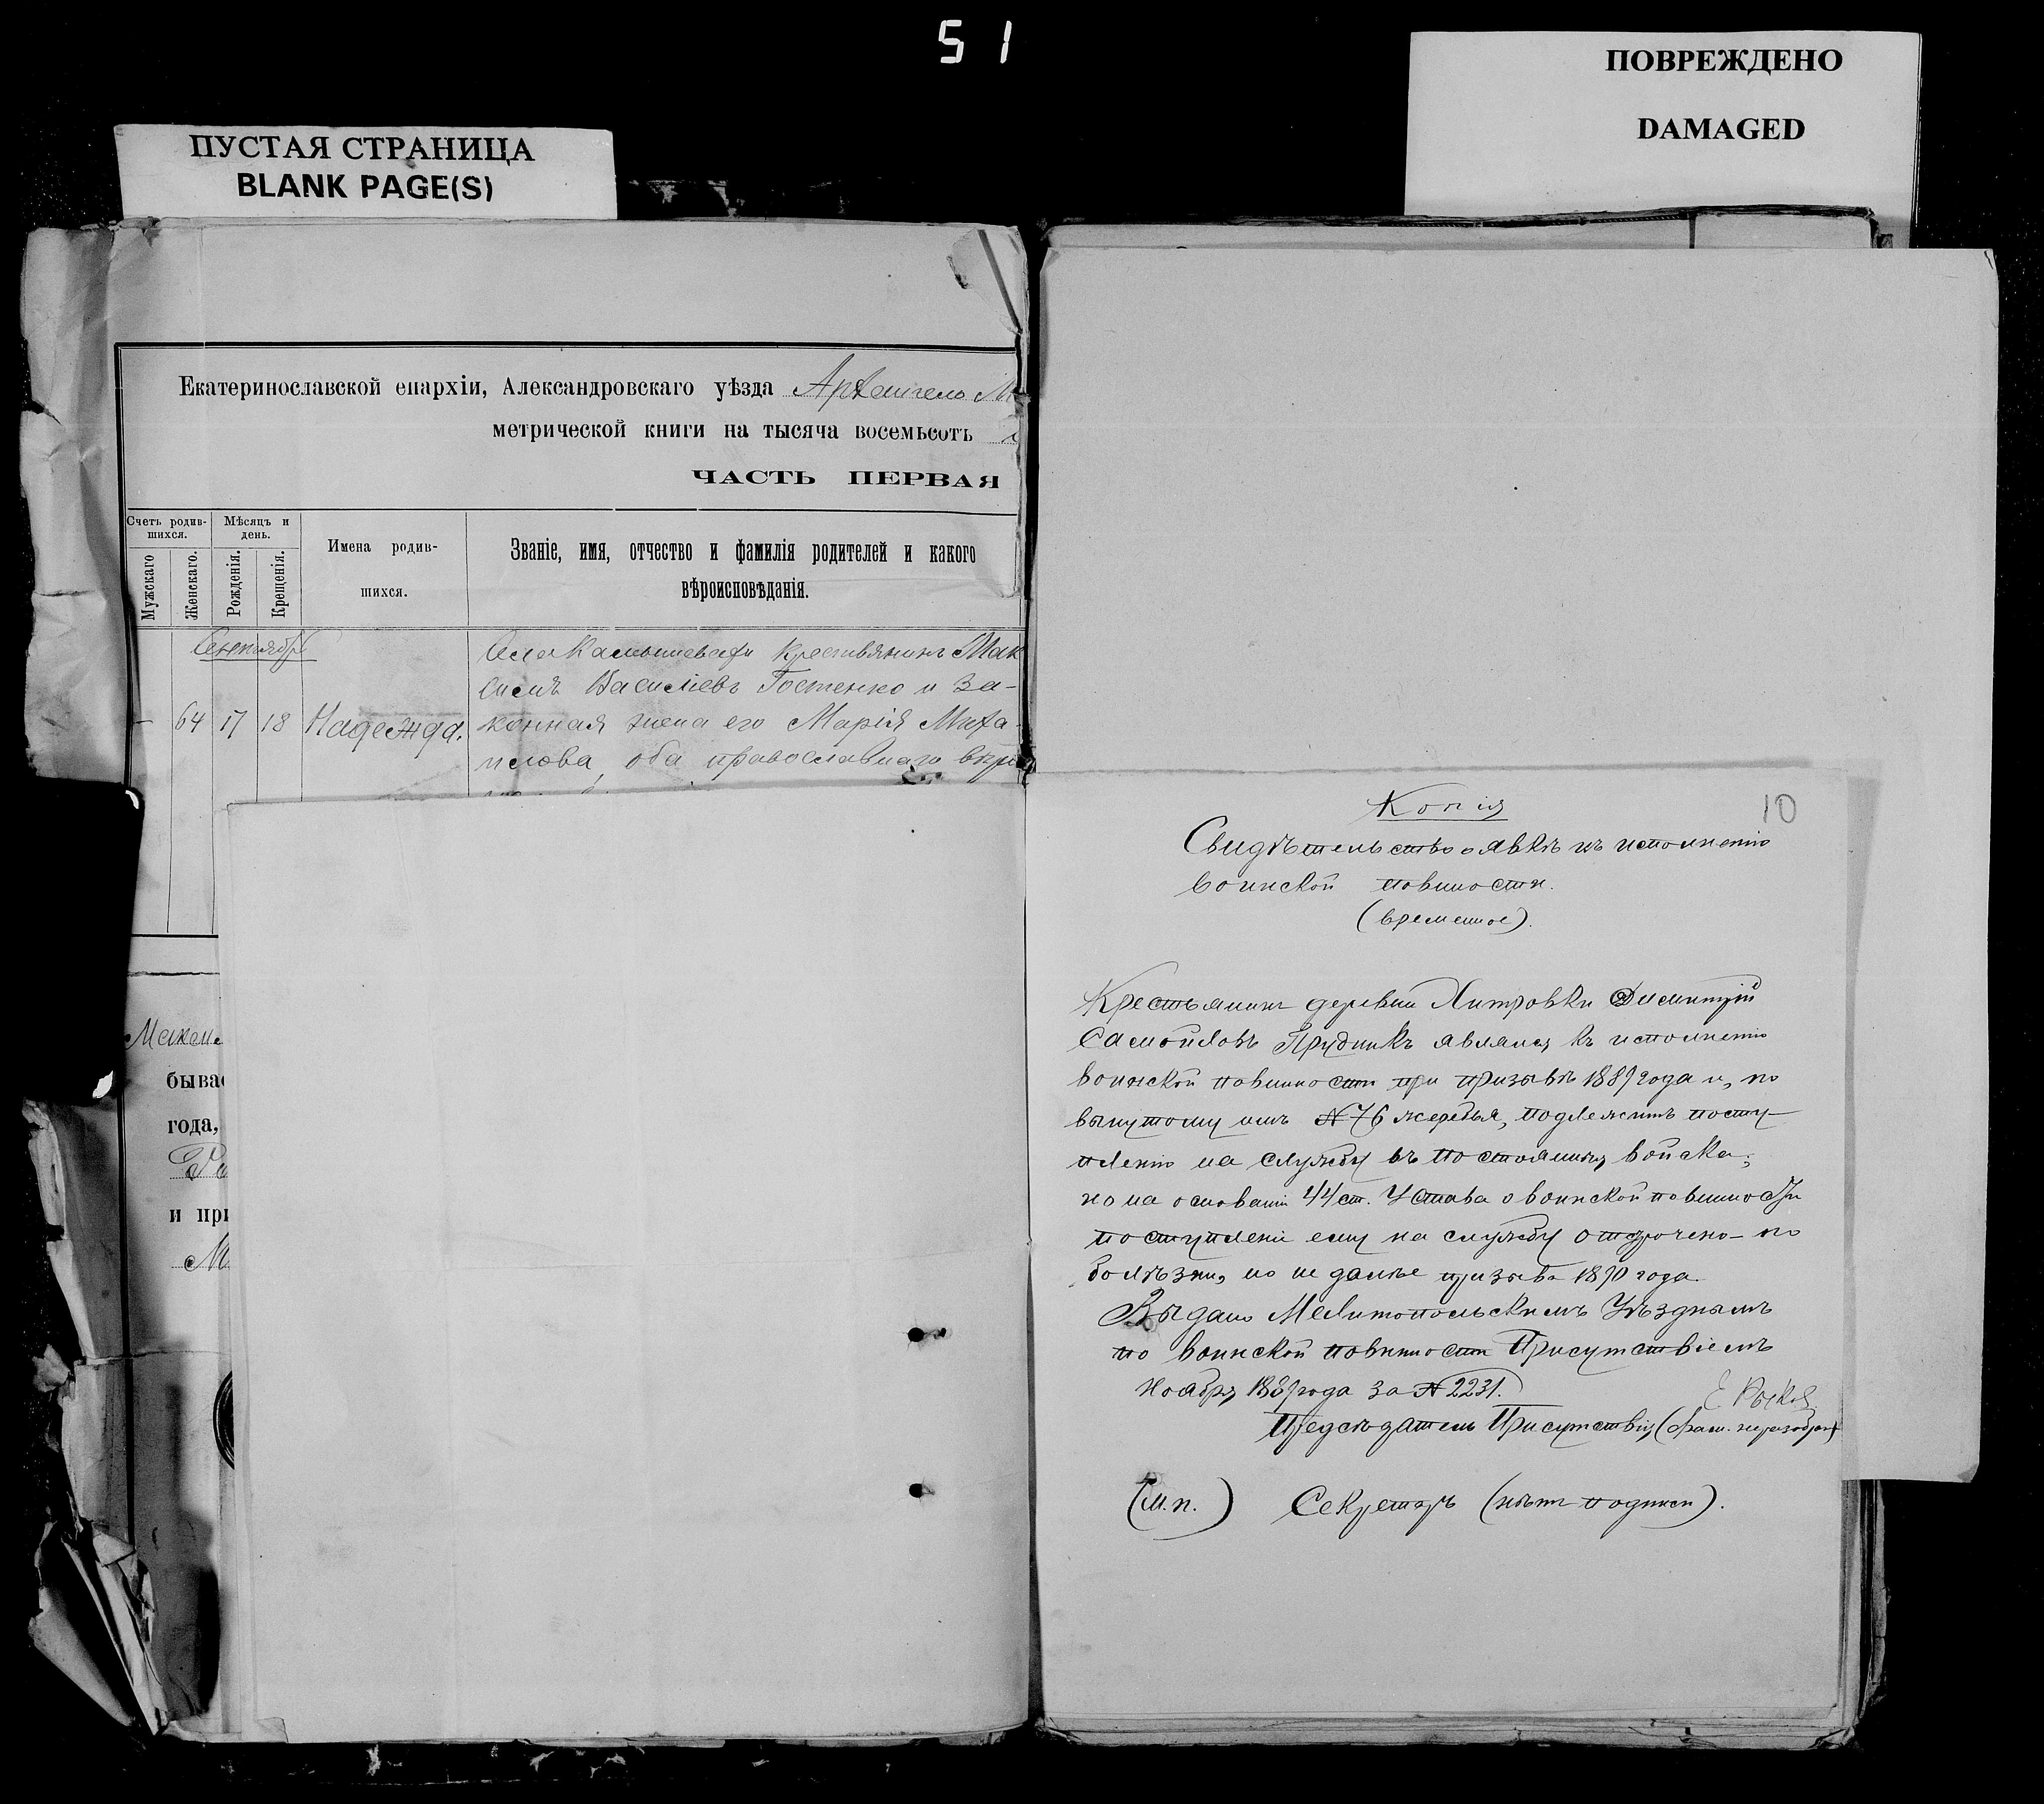 51
ПОВРЕЖДЕНО
DAMAGED
ПУСТАЯ СТРАНИЦА
BLANK PAGE(S)
Екатеринославской епархіи, Александровскаго уѣзда Архангело М
метрической книги на тысяча восемьсотъ
ЧАСТЬ ПЕРВАЯ
Счетъ родив-
шихся.
Мужскаго
Женскаго.
Мѣсяцъ и
день.
Рожденія.
Крещенія.
Имена родив-
шихся.
Званіе, имя, отчество и фамилія родителей и какого
вѣроисповѣданія.
Сентябрь
Села крестьянинъ Мак
симъ Василіевъ Гостенко и за-
64 17 18 Надежда. конная жена его Марія Миха-
илова, оба православнаго вѣро
быва
года,
и при
М
Копія
10
Свидѣтельство о явкѣ къ исполненію
воинской повинности.
(временное).
Крестьянинъ деревни Хитровки Димитрій
Самойловъ Прудникъ являлся къ исполненію
воинской повинности при призывѣ 1889 года и, по
вынутому имъ № 76 жеребья, подлежитъ посту-
пленію на службу въ постоянныя войска;
но на основаніи 44 ст. Устава о воинской повинности
поступленіе ему на службу отсрочено по
болѣзни, но не далѣе призыва 1890 года.
Выдано Мелитопольскимъ Уѣзднымъ
по воинской повинности Присутствіемъ
Ноября 1889 года за № 2231.
Предсѣдатель Присутствія (фам. неразобран)
(М.п.) Секретарь (нѣтъ подписи).